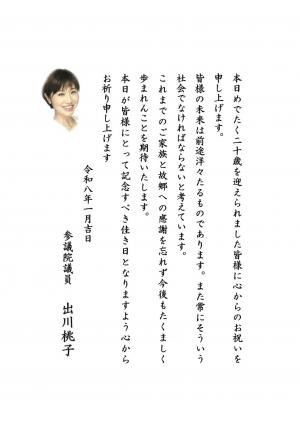 本日めでたく二十歳を迎えられました皆様に心からのお祝いを
申し上げます。
皆様の未来は前途洋々たるものであります。また常にそういう
社会でなければならないと考えています。
これまでのご家族と故郷への感謝を忘れず今後もたくましく
歩まれんことを期待いたします。
本日が皆様にとって記念すべき佳き日となりますよう心から
お祈り申し上げます
令和八年一月吉日
参議院議員 出川桃子